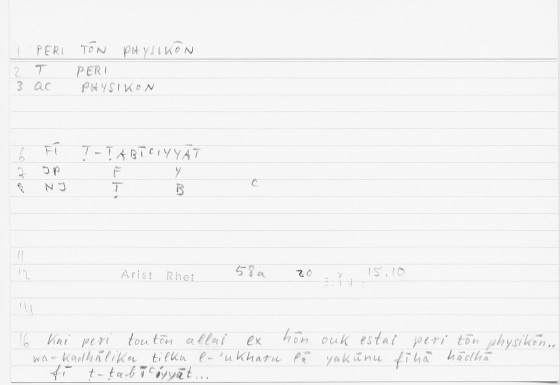 1 PERI TŌN PHYSIKŌN
2 T PERI
3 QC PHYSIKON
6 FĪ Ṭ-ṬABĪCIYYĀT
7 JP F Y
8 NJ Ṭ B C
11
12 Arist Rhet 58a 20 15.10
16 Kai peri toutōn allai ex hōn ouk estai peri tōn physikōn..
wa-kadhālika tilka l-'ukharu lā yakūnu fīhā hādhā
fī ṭ-ṭabīciyyāt...